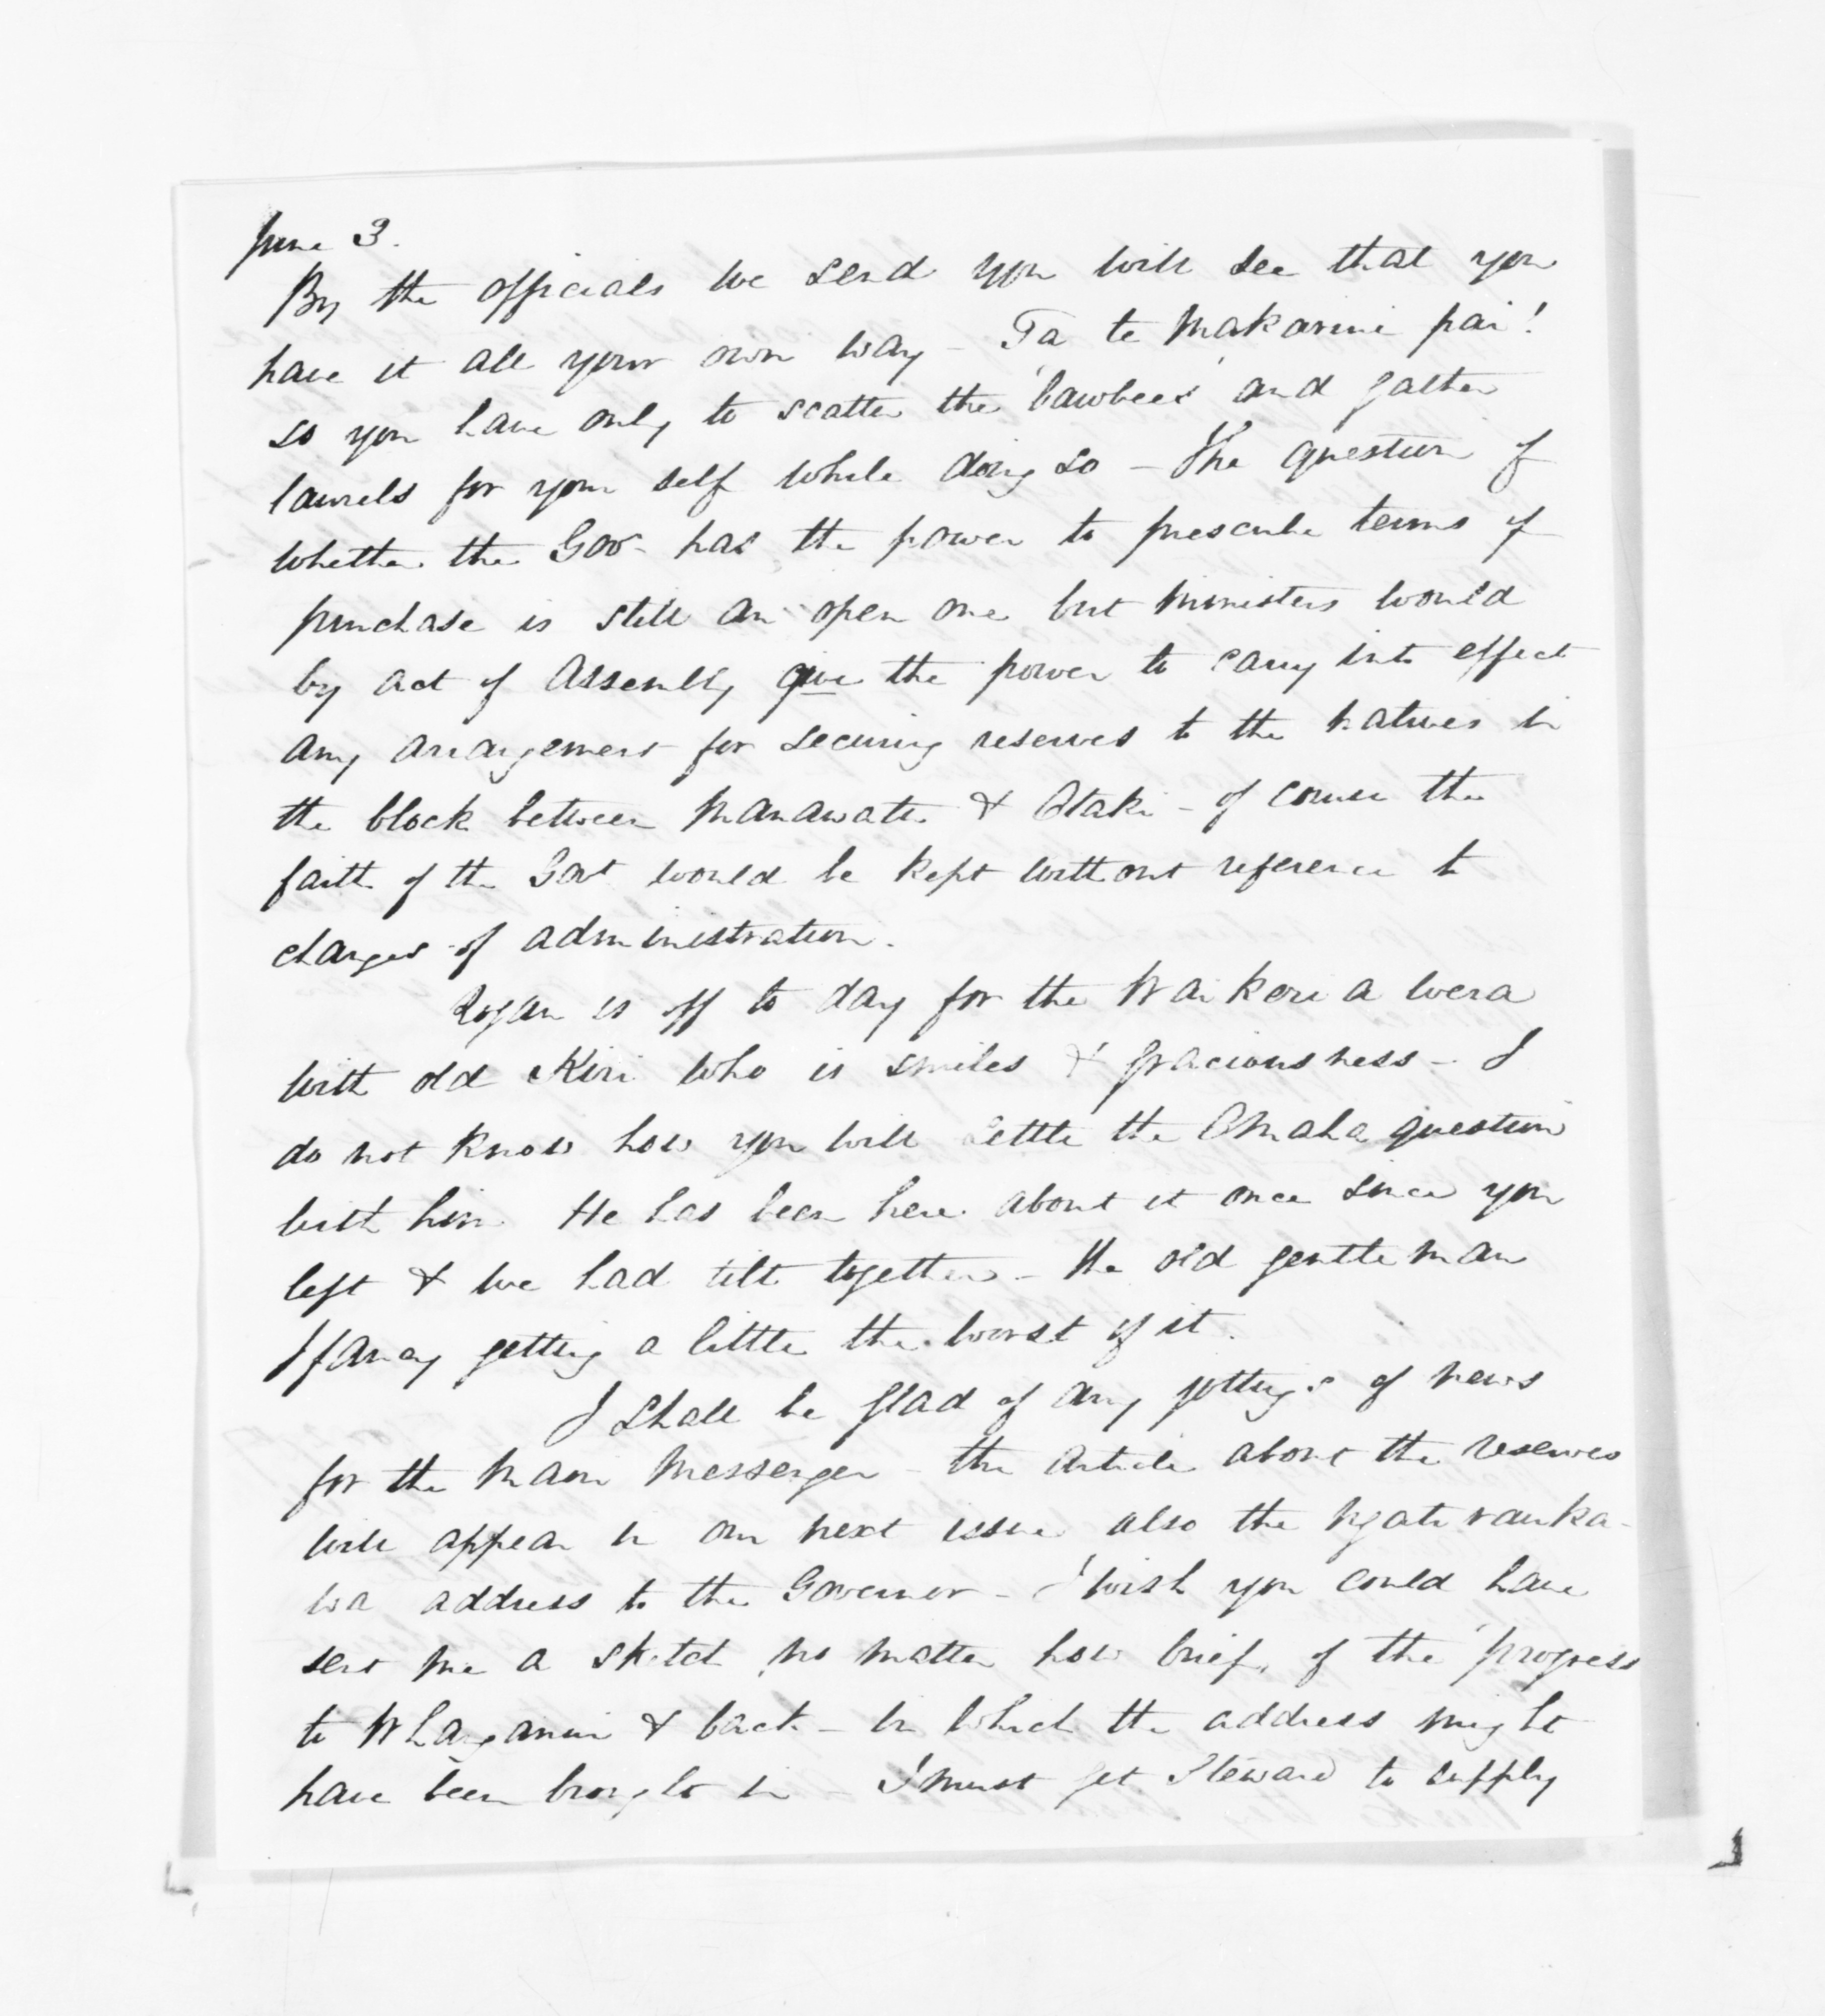 June 3.
By the officials we send you will see that you
have it all your own way – Ta te Makarini pai!
so you have only to scatter the 'bawbees' and gather
laurels for your self while doing so – The question of
whether the Gov. has the power to prescribe terms of
purchase is still an open one but Ministers would
by act of Assembly give the power to carry into effect
any arrangement for securing reserves to the natives in
the block between Manawatu & Otaki – of course the
faith of the Govt would be kept without reference to
changes of administration.
Rogan is off to day for the Wai Keri a wera
with old Kiri who is smiles & graciousness – I
do not know how you will settle the Omaha question
with him. He has been here about it once since you
left & we had tilt together – the old gentleman
I fancy getting a little the worst of it.
I shall be glad of any jottings of news
for the Maori Messenger – the article about the reserves
will appear in our next issue also the Ngati rauka-
wa address to the Governor – I wish you could have
sent me a sketch, no matter how brief, of the 'progress
to Whanganui & back – in which the address might
have been brought in – I must get Steward to supply